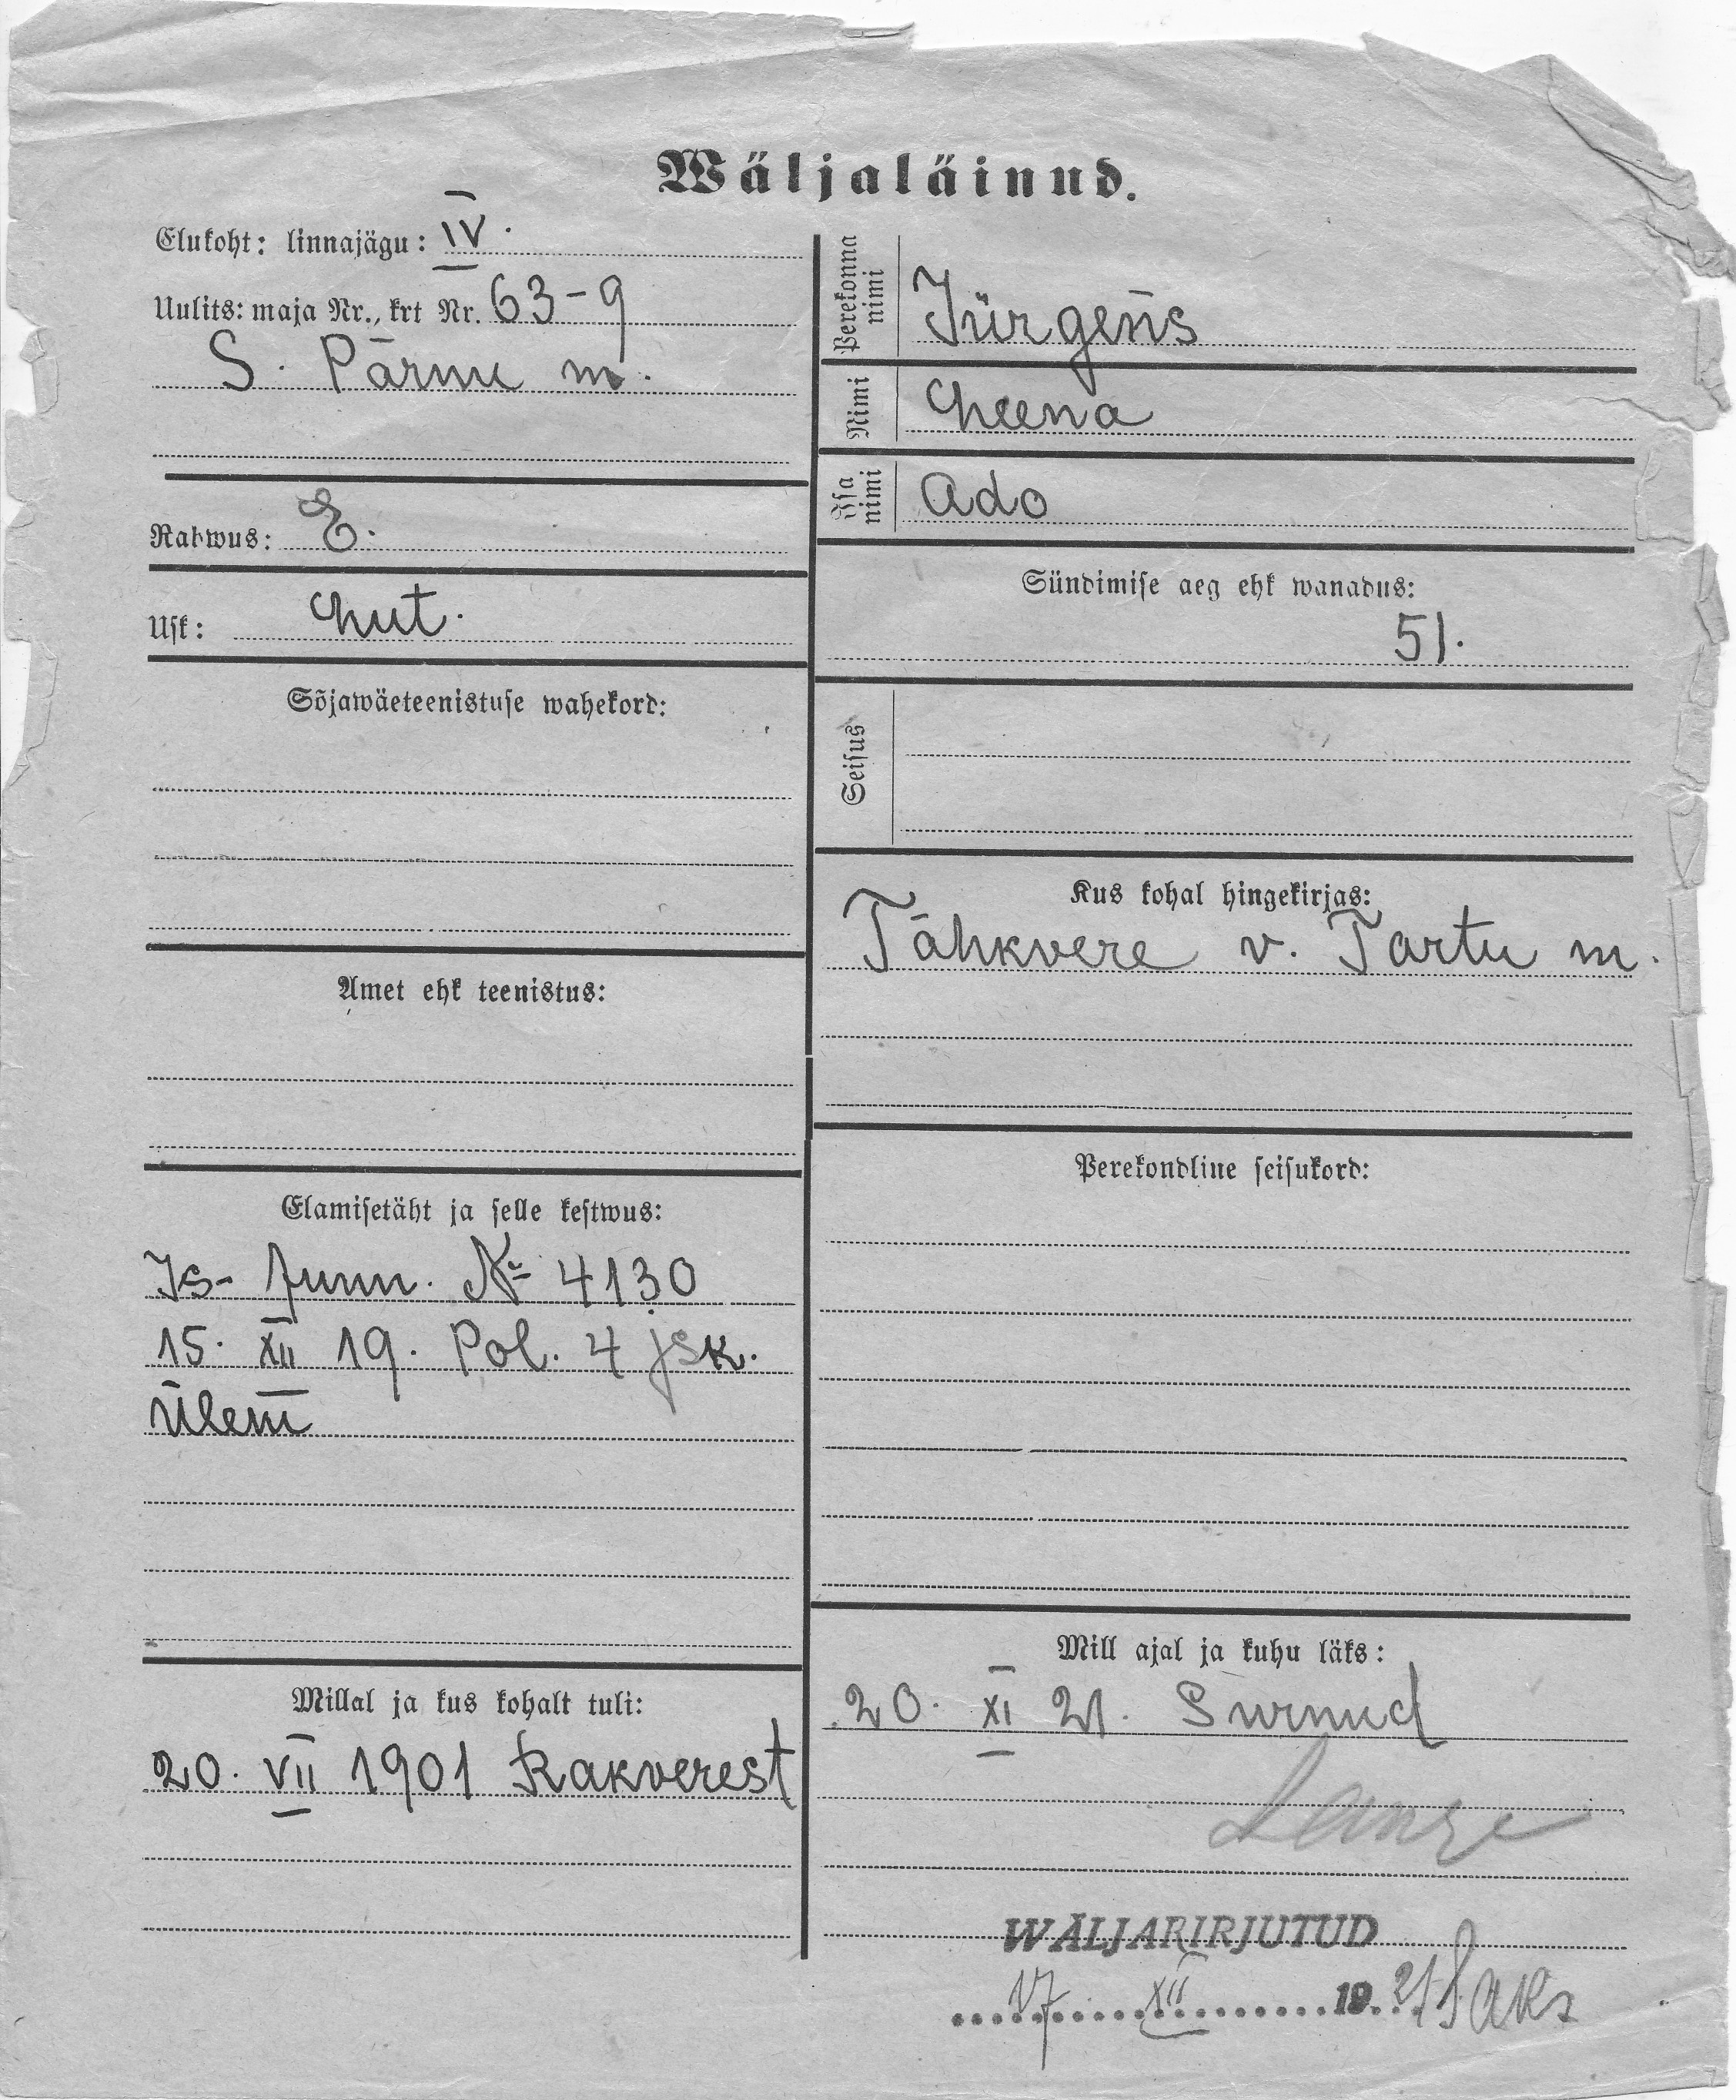 Wäljaläinud.
Elukoht: linnajägu: IV.
Uulits: maja Nr., krt Nr. 63-9
S. Pärnu m.
Rahwus: E.
Usk: Lut.
Sõjawäeteenistuse wahekord:
Amet ehk teenistus:
Elamisetäht ja selle kestwus:
Is- tunn. № 4130
15. XII 19. Pol. 4 jsk.
ülem
Millal ja kus kohalt tuli:
20. VII 1901 Rakverest
Perekonna nimi
Jürgens
Nimi
Leena
Isa nimi
Ado
Sündimise aeg ehk wanadus:
51.
Seisus
Kus kohal hingekirjas:
Tähkvere v. Tartu m.
Perekondline seisukord:
Mill ajal ja kuhu läks:
20. XI 21. Surnud
WÄLJAKIRJUTUD
17 XII 1921